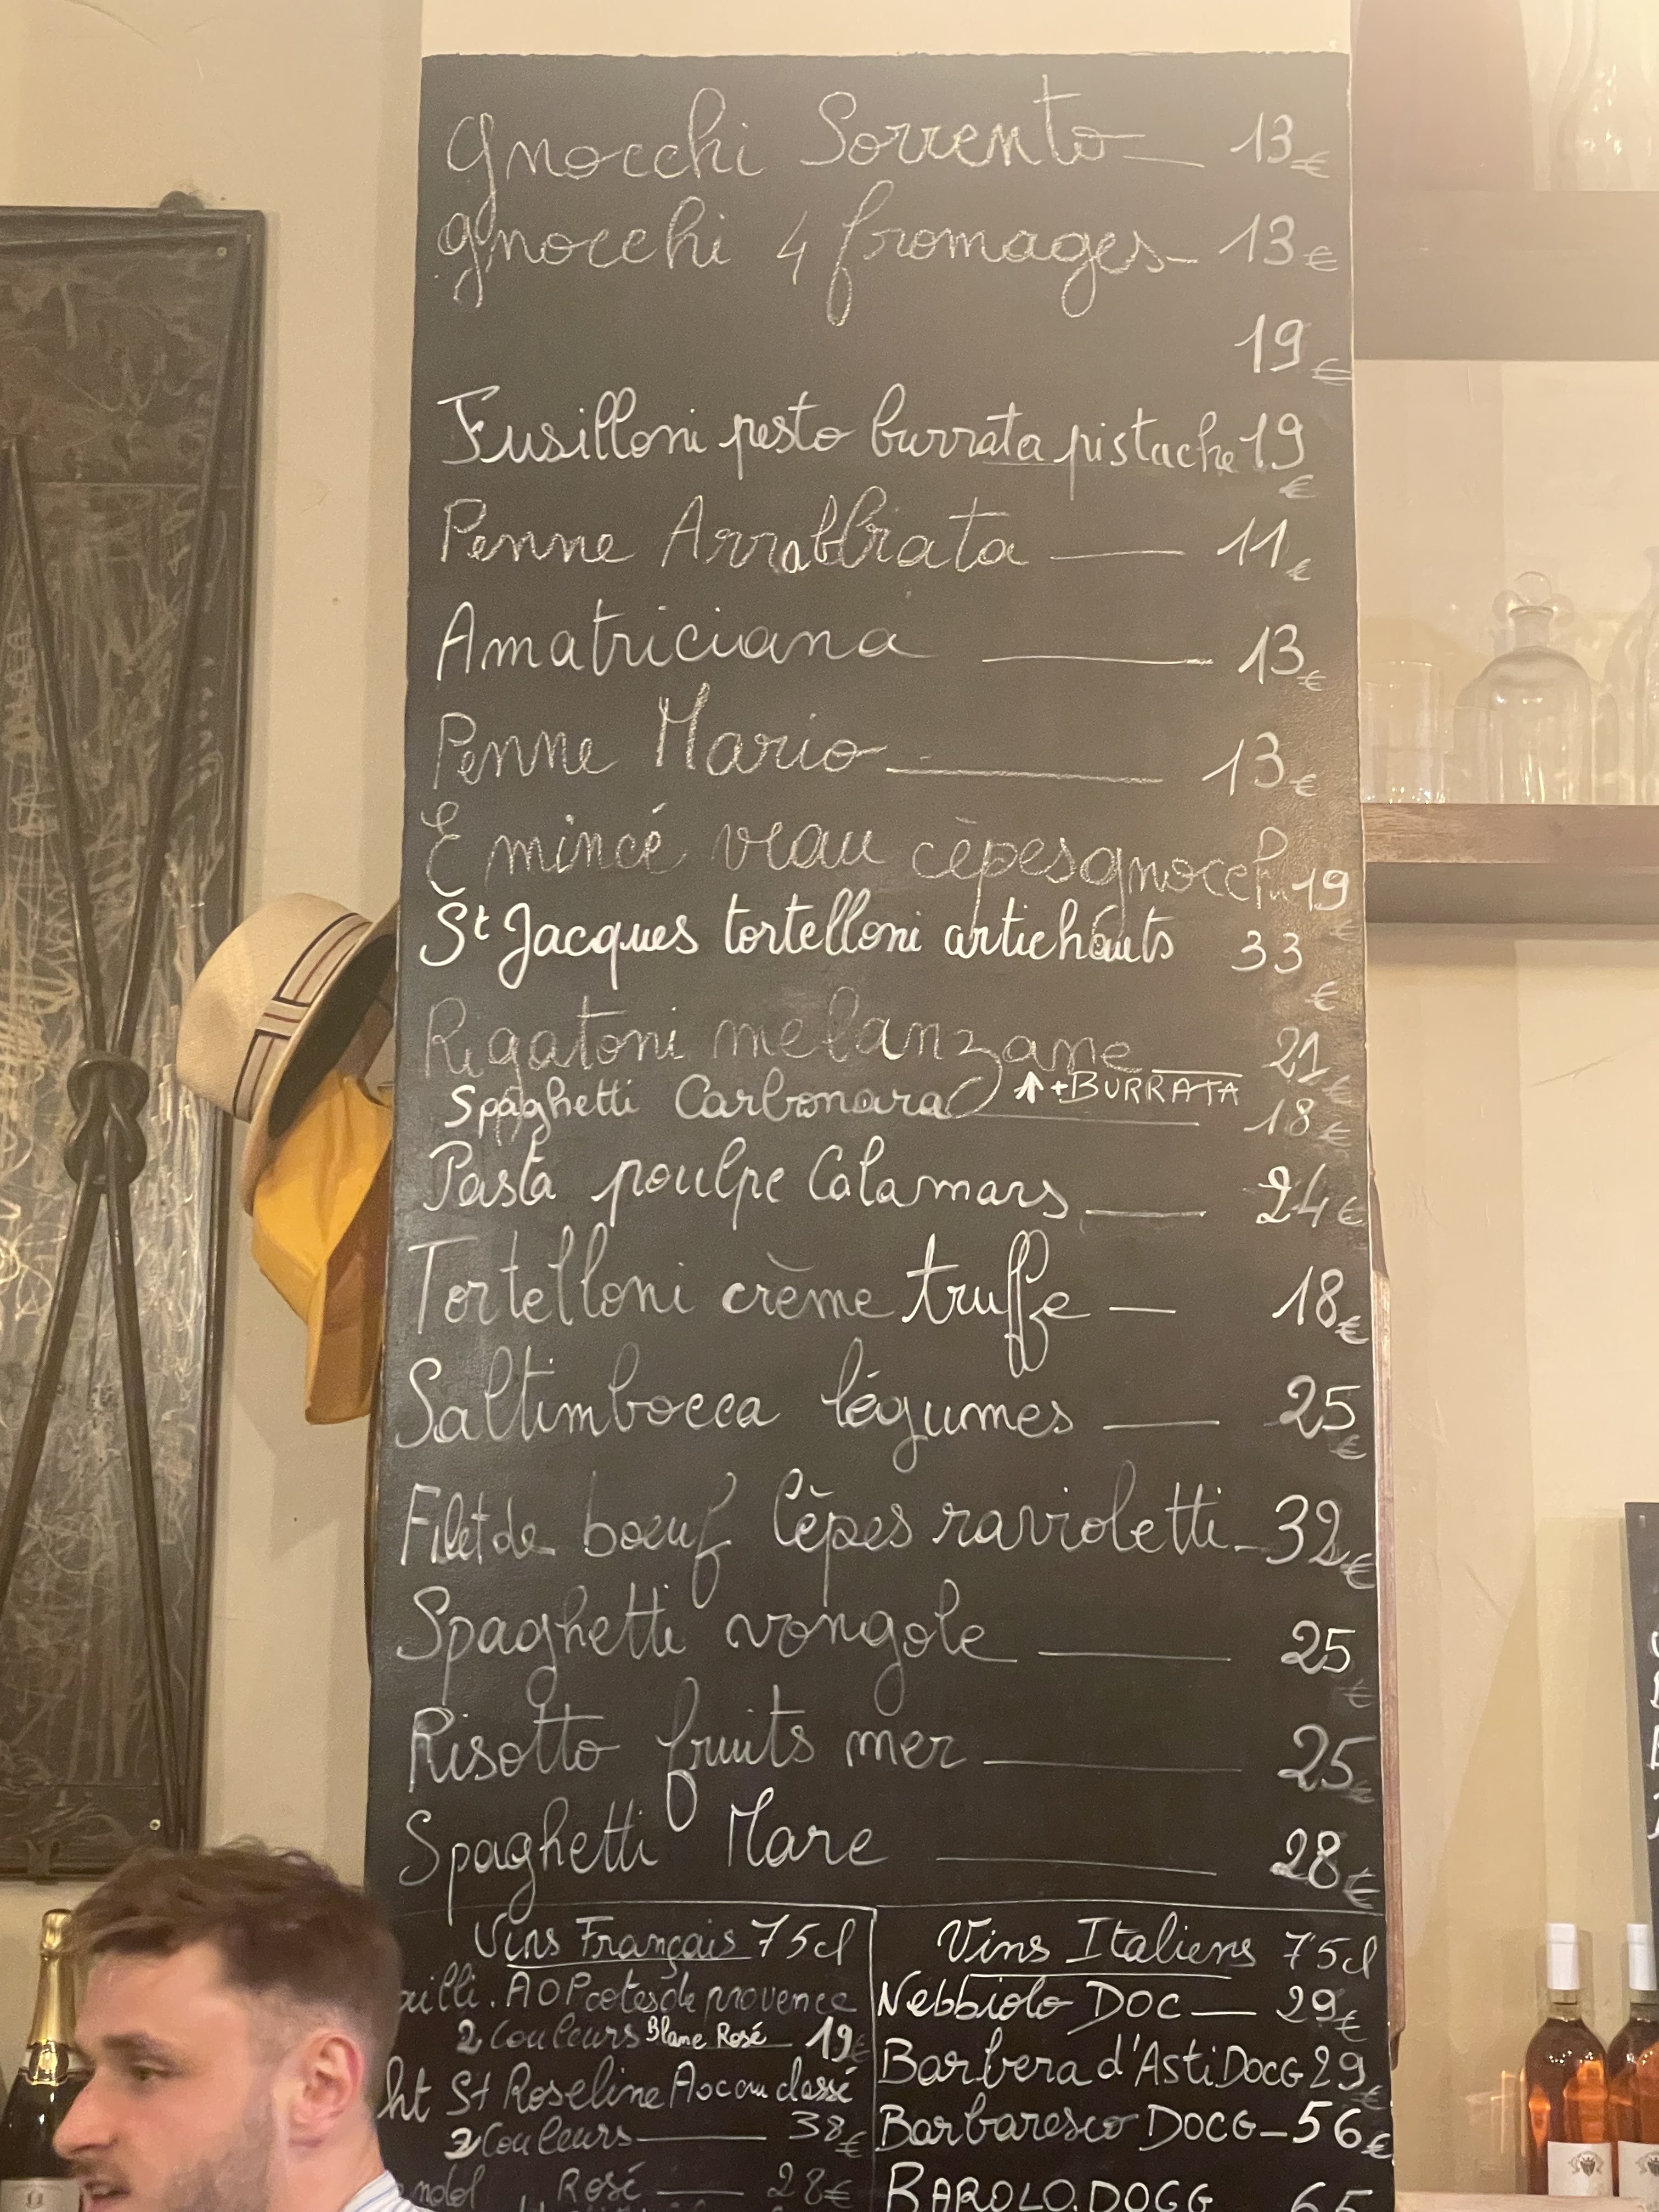 Gnocchi Sorrento 13€
gnocchi 4 fromages 13€
19€
Fusilloni pesto burrata pistache 19€
Penne Arrabbiata 11€
Amatriciana 13€
Penne Mario 13€
Emincé veau cèpes gnocchi 19€
St Jacques tortelloni artichauts 33€
Rigatoni melanzane 21€
↑+BURRATA
Spaghetti Carbonara 18€
Pasta poulpe Calamars 24€
Tortelloni crème truffe 18€
Saltimbocca légumes 25€
Filet de boeuf Cèpes ravioletti 32€
Spaghetti vongole 25€
Risotto fruits mer 25€
Spaghetti Mare 28€
Vins Français 75cl
AOP cotes de provence
2 Couleurs Blanc Rosé 19€
St Roseline Aoc cru classé
2 Couleurs 38€
Rosé 28€
Vins Italiens 75cl
Nebbiolo DOC 29€
Barbera d'Asti DOCG 29€
Barbaresco DOCG 56€
BAROLO.DOCG 65